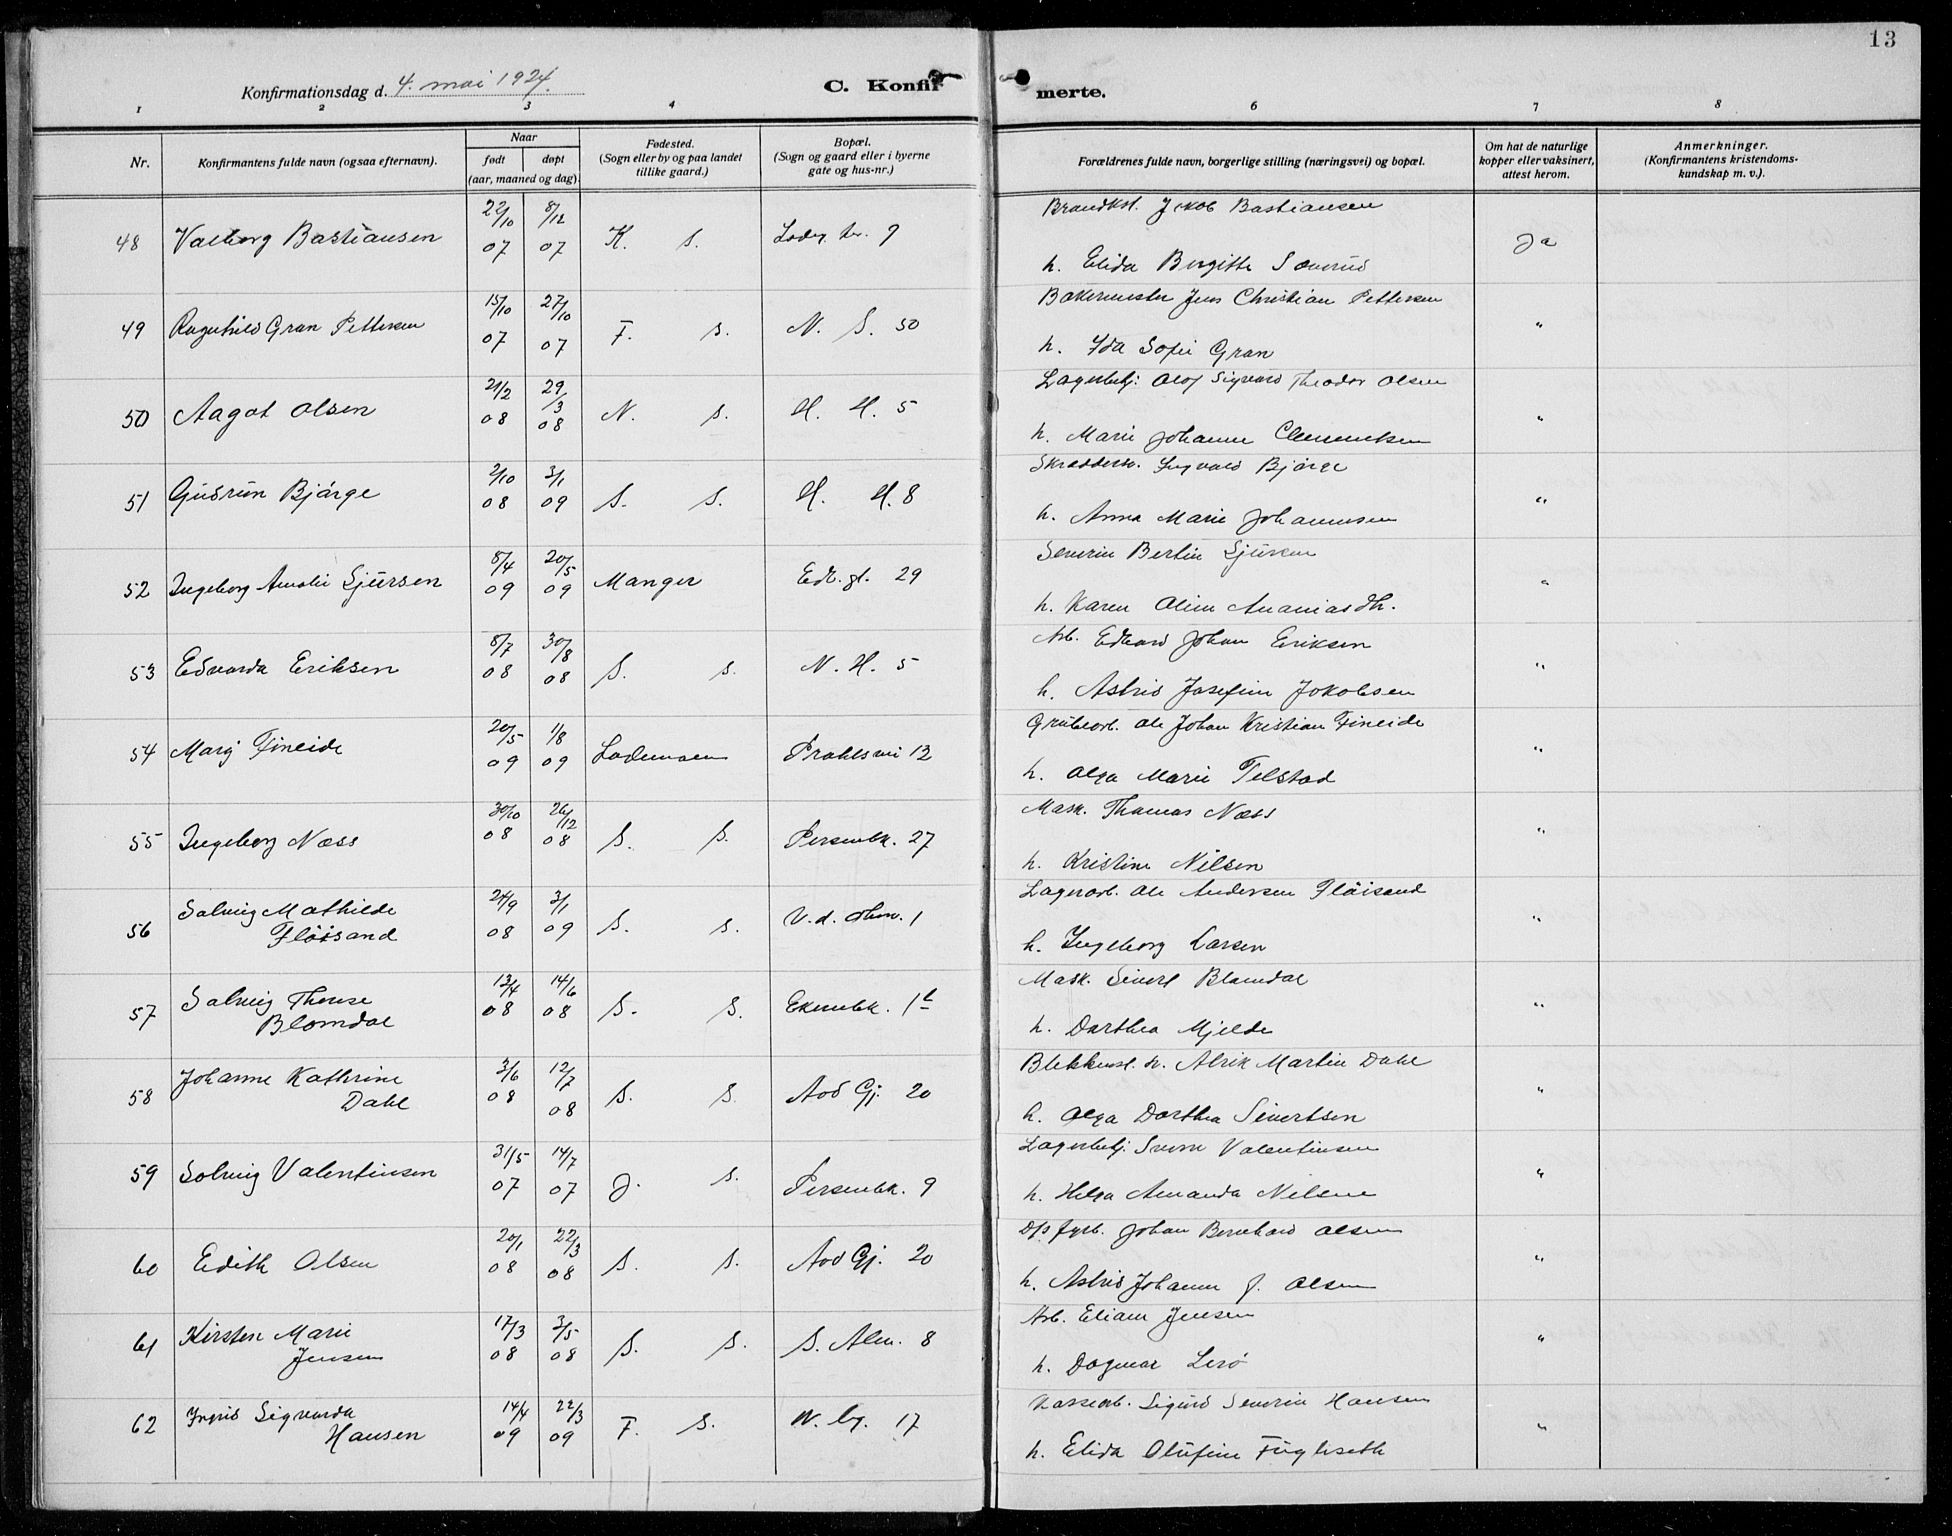 13
Konfirmationsdag d. 4. mai 1924.
C. Konfirmerte.
1 2 3 4 6 7 8
Nr. Konfirmantens fulde navn (ogsaa efternavn). Naar født døpt (aar, maaned og dag). Fødested. (Sogn eller by og paa landet tillike gaard.) Bopæl. (Sogn og gaard eller i byerne gate og hus-nr.) Forældrenes fulde navn, borgerlige stilling (næringsvei) og bopæl. Om hat de naturlige kopper eller vaksinert, attest herom. Anmerkninger. (Konfirmantens kristendoms-kundskap m. v.).
48 Valborg Bastiansen 22/10 07 8/12 07 K. s. 9 Brandkst. Jakob Bastiansen
h. Elida Birgitte Ja
49 Ragnhild Gran Pettersen 15/10 07 27/10 07 F. s. N. S. 50 Bakermester Jens Christian Pettersen
h. Ida Sofie Gran "
50 Aagot Olsen 21/2 08 29/3 08 N. s. H. H. 5 Lagerbetj. Olof Sigvard Theodor Olsen
h. Marie Johanne Clemmetsen "
51 Gudrun Bjørge 2/10 08 3/1 09 S. s. H. H. 8 Skræddersv. Ingvald Bjørge
h. Anna Marie Johannesen "
52 Ingeborg Amalie Sjursen 8/4 09 20/5 09 Manger 29 Severin Bertin Sjursen
h. Karen Oline Ananiasdtr. "
53 Edvarda Eriksen 8/7 08 30/8 08 S. s. N. H. 5 Arb. Edvard Johan Eriksen
h. Astrid Josefine Jakobsen "
54 Marij Fineide 20/5 09 1/8 09 Lademoen Prahlsvei 12 Grubearb. Ole Johan Kristian Fineide
h. Olga Marie Telstad "
55 Ingeborg Næss 30/10 08 26/12 08 S. s. Persenbk. 27 Mask. Thomas Næss
h. Kristine Nilsen "
56 Solveig Mathilde
Fløisand 24/9 08 3/1 09 S. s. 1 Lagerarb. Ole Andersen Fløisand
h. Ingeborg Larsen "
57 Solveig Therese
Blomdal 12/4 08 14/6 08 S. s. Ekrenbk. 1b Mask. Sivert Blomdal
h. Dorthea Mjelde "
58 Johanne Kathrine
Dahl 3/6 08 12/7 08 S. s. Aad Gj. 20 Alrik Martin Dahl
h. Olga Dorthea Sivertsen "
59 Solveig Valentinsen 31/5 07 14/7 07 J. s. Persenbk. 9 Lagerbetj. Sverre Valentinsen
h. Helga Amanda Nilsen "
60 Edith Olsen 20/1 08 22/3 08 S. s. Aad Gj. 20 D/s fyrb. Johan Bernhard Olsen
h. Astrid Johanne J. Olsen "
61 Kirsten Marie
Jensen 17/3 08 3/5 08 S. s. S. Alm. 8 Arb. Eliam Jensen
h. Dagmar Lerø "
62 Ingrid Sigvarda
Hansen 14/4 09 22/3 09 F. s. 17 Sigurd Severin Hansen
h. Elida Olufine Fuglseth "